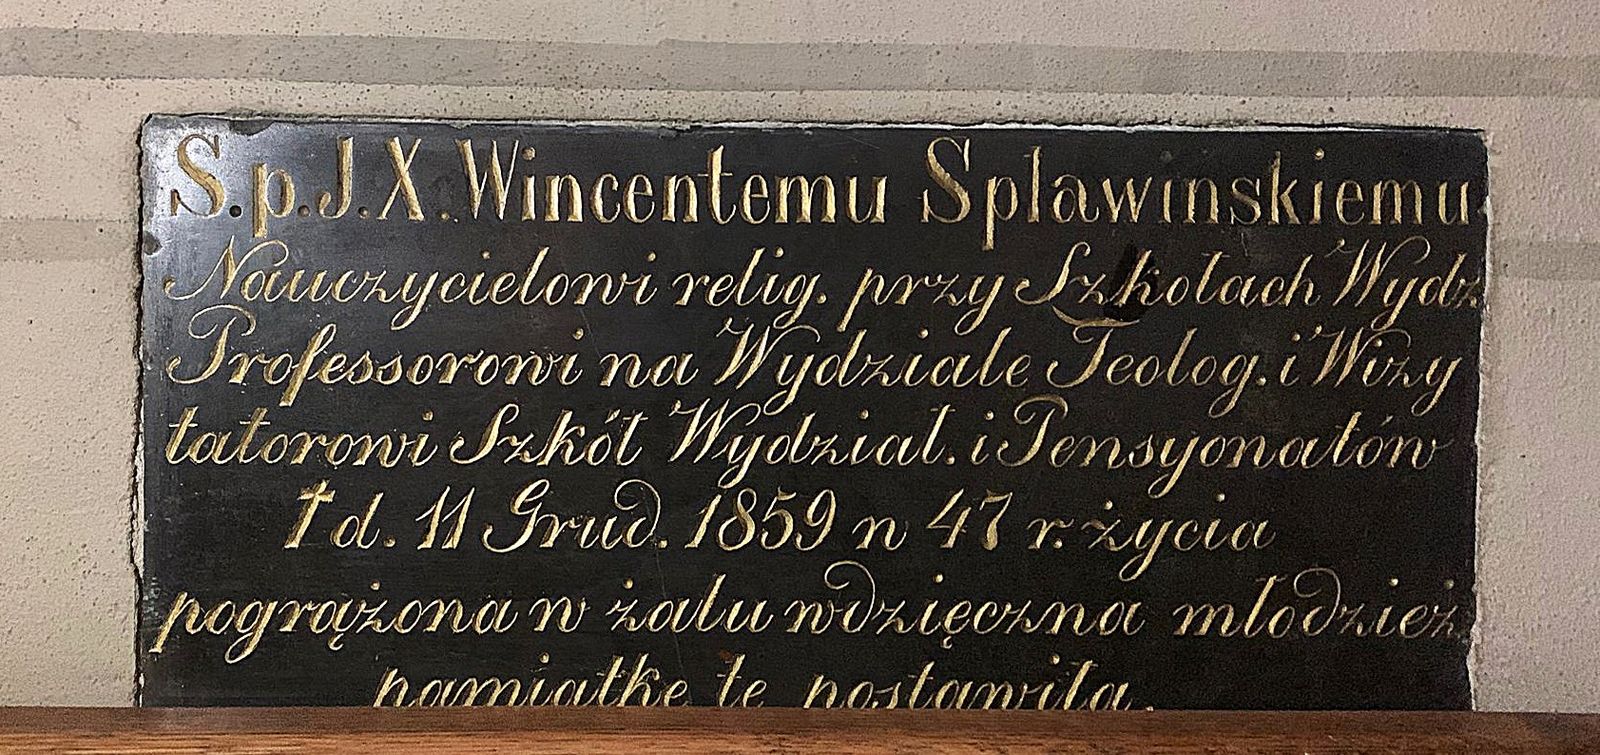 S.p.J.X. Wincentemu Splawinskiemu
Nauczycielowi relig. przy Szkołach Wydz.
Professorowi na Wydziale Teolog. i Wizy
tatorowi Szkół Wydział. i Pensyonatów
† d. 11 Grud. 1859 w 47 r. życia
pogrążona w żalu wdzięczna młodzież
pamiątkę tę postawiła.